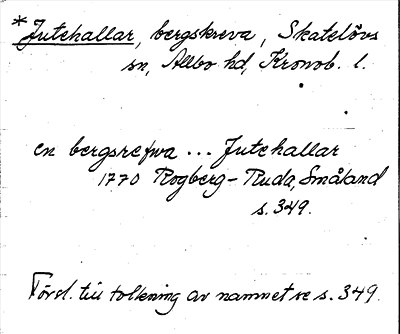 *Jutehallar, bergskreva, Skatelövs
sn, Allbo hd, Kronob. l.
en bergsrefwa ... Jutehallar
1770 Rogberg-Ruda, Småland
s. 349.
Försl. till tolkning av namnet se s. 349.